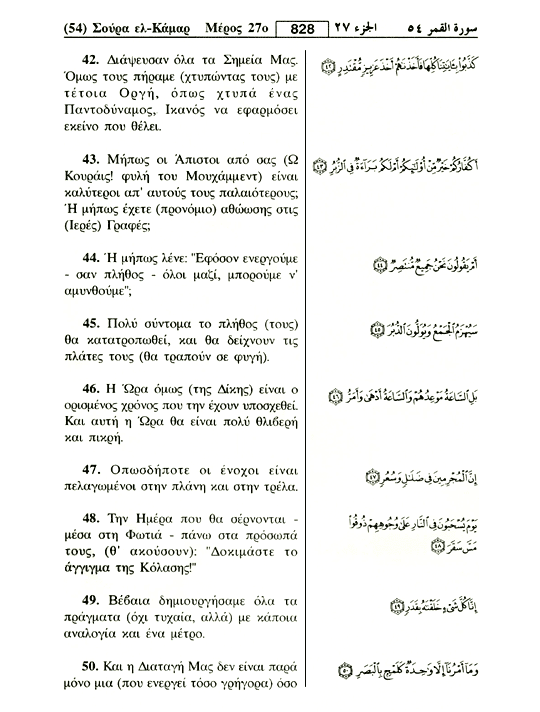 (54) Σούρα ελ-Κάμαρ Μέρος 27ο 828 الجزء ٢٧ سورة القمر ٥٤
42. Διάψευσαν όλα τα Σημεία Μας.
Όμως τους πήραμε (χτυπώντας τους) με
τέτοια Οργή, όπως χτυπά ένας
Παντοδύναμος, Ικανός να εφαρμόσει
εκείνο που θέλει.
كَذَّبُوا۟ بِـَٔايَـٰتِنَا كُلِّهَا فَأَخَذْنَـٰهُمْ أَخْذَ عَزِيزٍ مُّقْتَدِرٍ ٤٢
43. Μήπως οι Άπιστοι από σας (Ω
Κουράις! φυλή του Μουχάμμεντ) είναι
καλύτεροι απ' αυτούς τους παλαιότερους;
Ή μήπως έχετε (προνόμιο) αθώωσης στις
(Ιερές) Γραφές;
أَكُفَّارُكُمْ خَيْرٌ مِّنْ أُو۟لَـٰٓئِكُمْ أَمْ لَكُم بَرَآءَةٌ فِى ٱلزُّبُرِ ٤٣
44. Ή μήπως λένε: "Εφόσον ενεργούμε
- σαν πλήθος - όλοι μαζί, μπορούμε ν'
αμυνθούμε";
أَمْ يَقُولُونَ نَحْنُ جَمِيعٌ مُّنتَصِرٌ ٤٤
45. Πολύ σύντομα το πλήθος (τους)
θα κατατροπωθεί, και θα δείχνουν τις
πλάτες τους (θα τραπούν σε φυγή).
سَيُهْزَمُ ٱلْجَمْعُ وَيُوَلُّونَ ٱلدُّبُرَ ٤٥
46. Η Ώρα όμως (της Δίκης) είναι ο
ορισμένος χρόνος που την έχουν υποσχεθεί.
Και αυτή η Ώρα θα είναι πολύ θλιβερή
και πικρή.
بَلِ ٱلسَّاعَةُ مَوْعِدُهُمْ وَٱلسَّاعَةُ أَدْهَىٰ وَأَمَرُّ ٤٦
47. Οπωσδήποτε οι ένοχοι είναι
πελαγωμένοι στην πλάνη και στην τρέλα.
إِنَّ ٱلْمُجْرِمِينَ فِى ضَلَـٰلٍ وَسُعُرٍ ٤٧
48. Την Ημέρα που θα σέρνονται -
μέσα στη Φωτιά - πάνω στα πρόσωπά
τους, (θ' ακούσουν): "Δοκιμάστε το
άγγιγμα της Κόλασης!"
يَوْمَ يُسْحَبُونَ فِى ٱلنَّارِ عَلَىٰ وُجُوهِهِمْ ذُوقُوا۟
مَسَّ سَقَرَ ٤٨
49. Βέβαια δημιουργήσαμε όλα τα
πράγματα (όχι τυχαία, αλλά) με κάποια
αναλογία και ένα μέτρο.
إِنَّا كُلَّ شَىْءٍ خَلَقْنَـٰهُ بِقَدَرٍ ٤٩
50. Και η Διαταγή Μας δεν είναι παρά
μόνο μια (που ενεργεί τόσο γρήγορα) όσο
وَمَآ أَمْرُنَآ إِلَّا وَٰحِدَةٌ كَلَمْحٍۭ بِٱلْبَصَرِ ٥٠